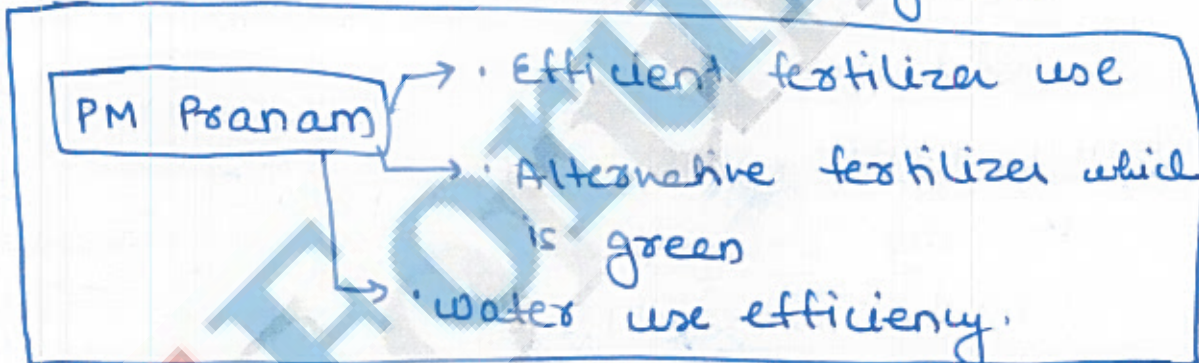 PM Pranam
· Efficient fertilizer use
· Alternative fertilizer which
is green
· water use efficiency.
Forum